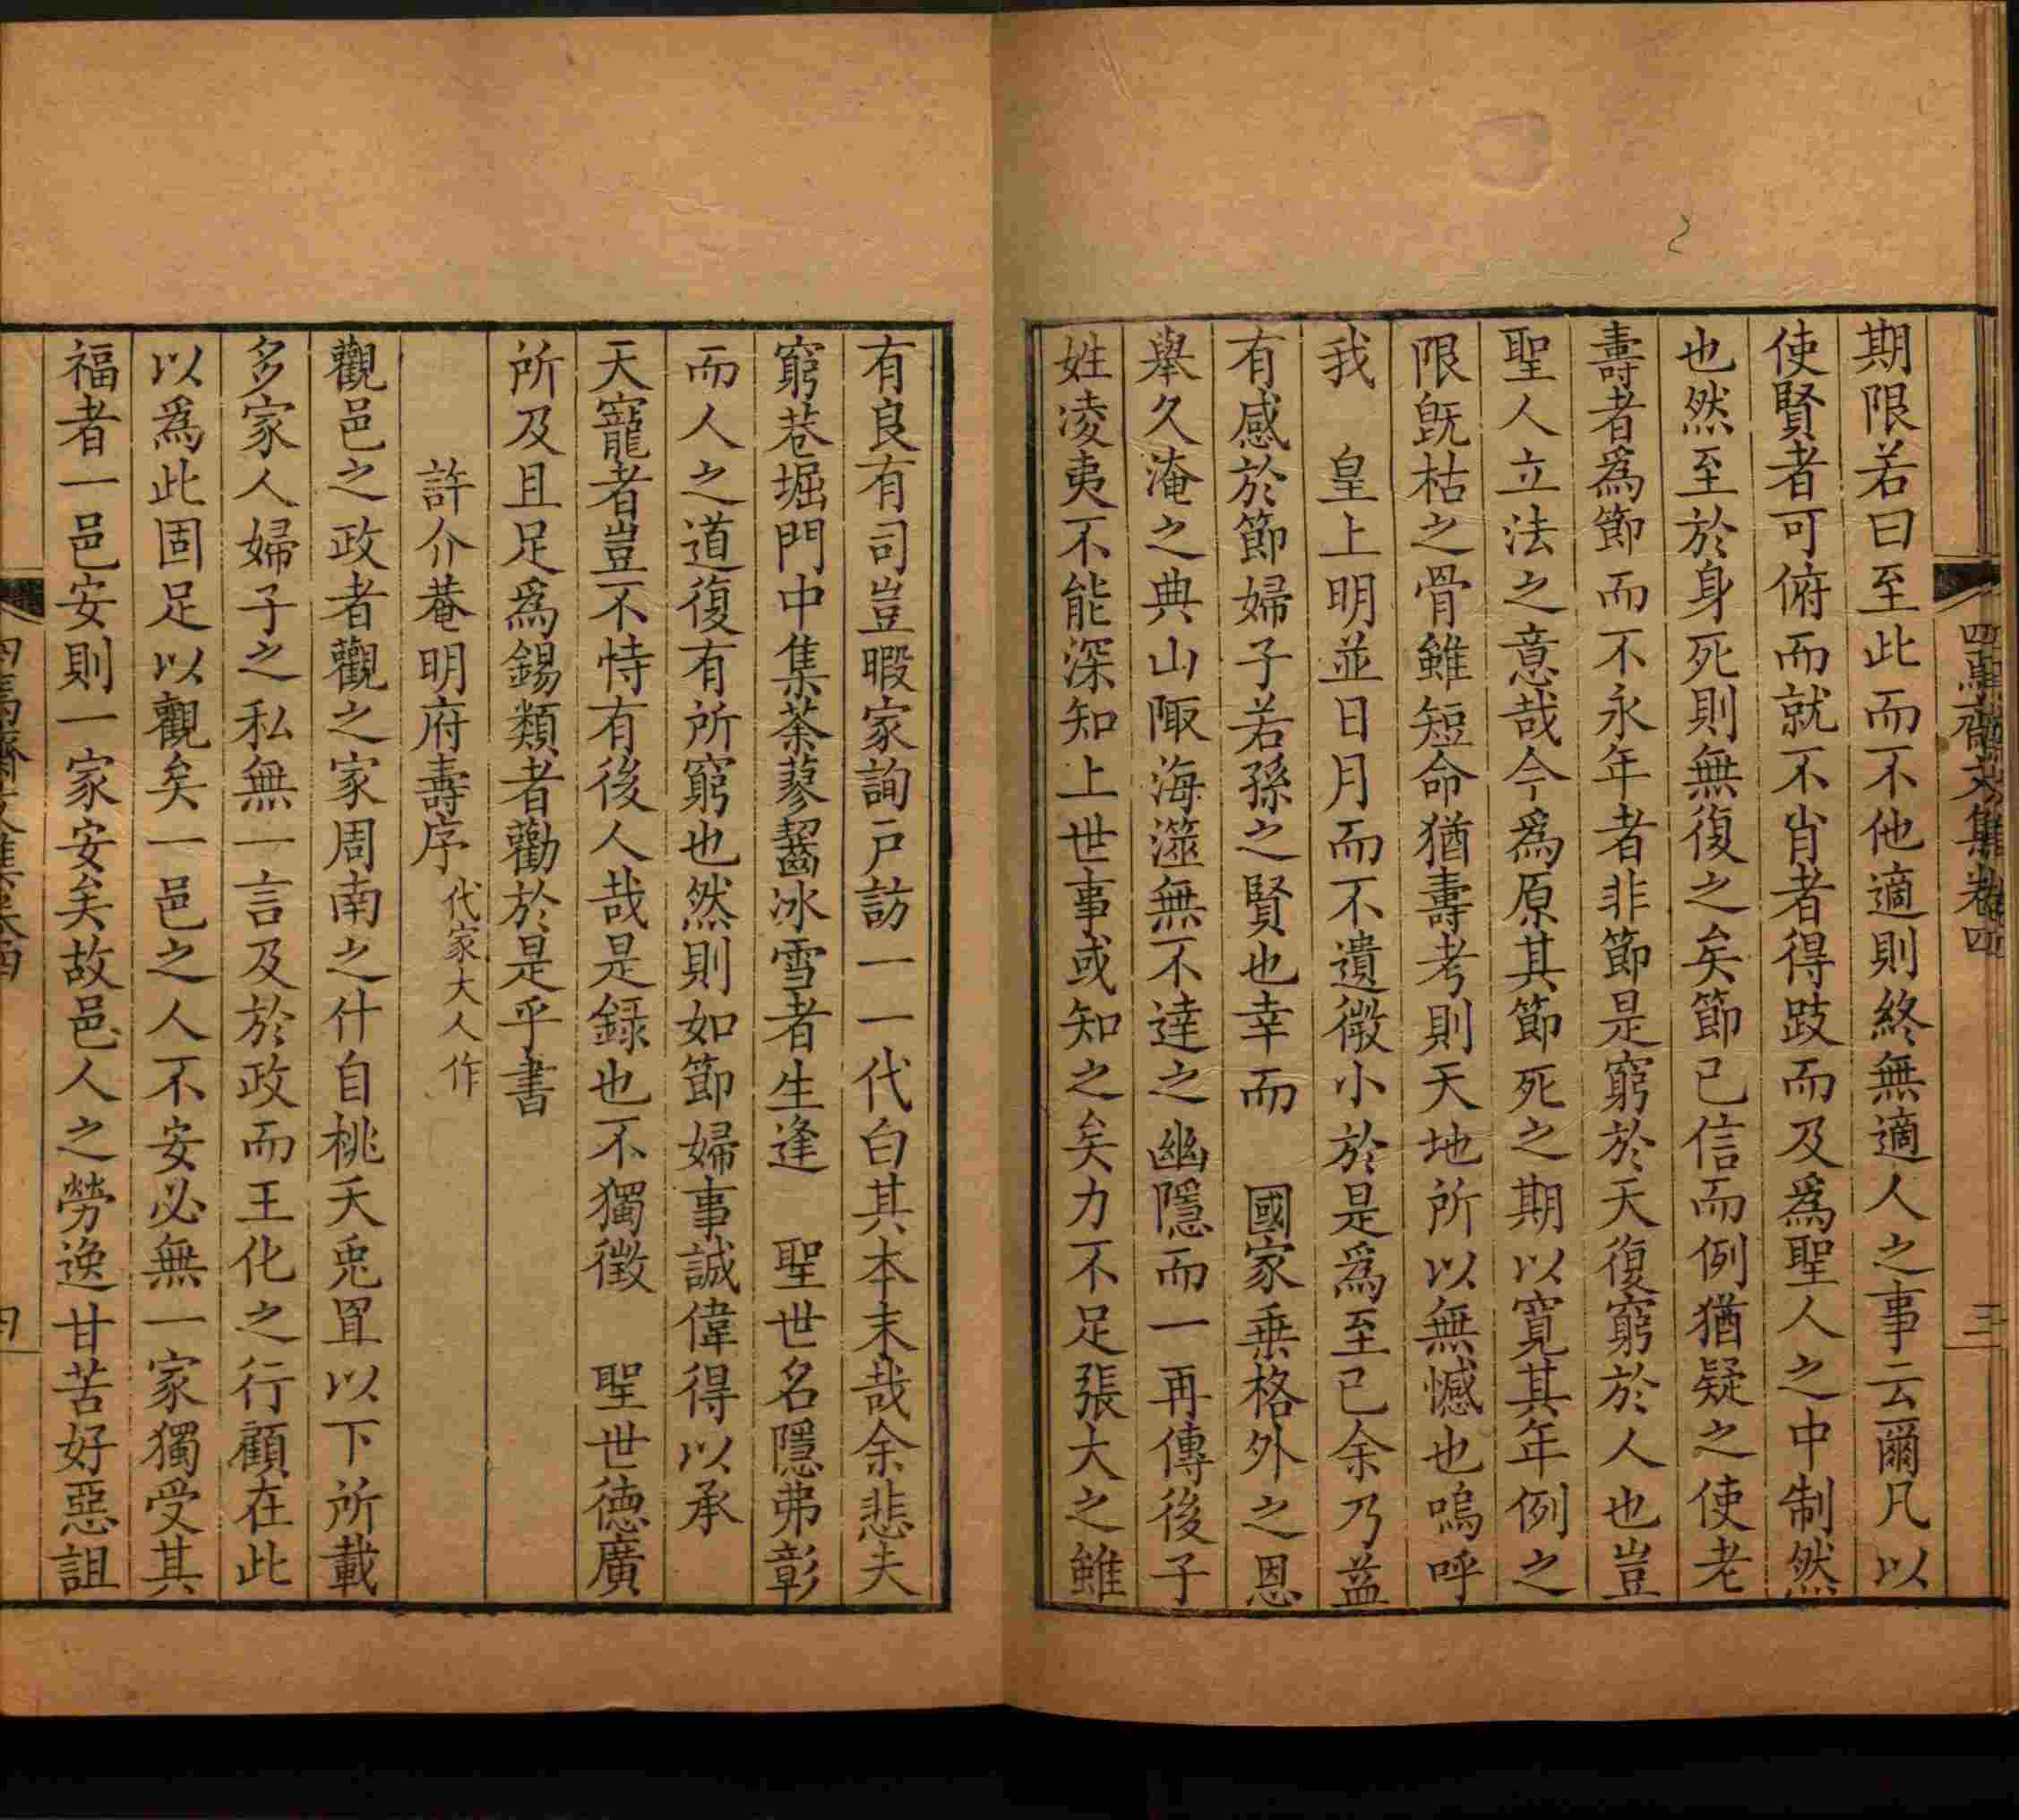 期限若曰至此而不他適則終無適人之事云爾凡以
使賢者可俯而就不肖者得跂而及爲聖人之中制然
也然至於身死則無復之矣節已信而例猶疑之使老
壽者爲節而不永年者非節是窮於天復窮於人也豈
聖人立法之意哉今爲原其節死之期以寬其年例之
限旣枯之骨雖短命猶壽考則天地所以無憾也嗚呼
我　皇上明並日月而不遺微小於是爲至已余乃益
有感於節婦子若孫之賢也幸而　國家乗格外之恩
舉久淹之典山陬海澨無不達之幽隱而一再傳後子
姓凌夷不能深知上世事或知之矣力不足張大之雖
有良有司豈暇家詢戸訪一一代白其本末哉余悲夫
窮巷堀門中集荼蓼齧冰雪者生逢　聖世名隱弗彰
而人之道復有所窮也然則如節婦事誠偉得以承
天寵者豈不恃有後人哉是録也不獨徵　聖世德廣
所及且足爲錫類者勸於是乎書
許介菴明府壽序代家大人作
觀邑之政者觀之家周南之什自桃夭兎罝以下所載
多家人婦子之私無一言及於政而王化之行顧在此
以爲此固足以觀矣一邑之人不安必無一家獨受其
福者一邑安則一家安矣故邑人之勞逸甘苦好惡詛